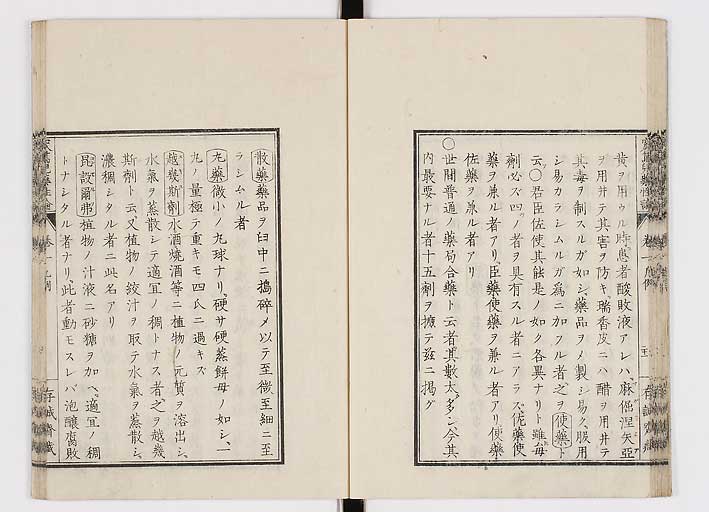 黄ヲ用ウル時患者酸敗液アレハ麻倔涅矢亞
ヲ用井テ其害ヲ防キ瑞香皮ニハ醋ヲ用井テ
其毒ヲ制スルガ如シ藥品ヲメ製シ易ク服用
シ易カラシムルガ爲ニ加フル者之ヲ使藥ト
云○君臣佐使其能是ノ如ク各異ナリト雖毎
劑必ズ四ノ者ヲ具有スル者ニアラズ佐藥使
藥ヲ兼ル者アリ臣藥使藥ヲ兼ル者アリ使藥
佐藥ヲ兼ル者アリ
○世間普通ノ藥局合藥ト云者其數太多シ今其
内最要ナル者十五劑ヲ擴テ玆ニ掲グ
散藥藥品ヲ臼中ニ搗碎メ以テ至微至細ニ至
ラシムル者
丸藥微小ノ丸球ナリ硬サ硬蒸餅母ノ如シ一
丸ノ量極テ重キモ四瓜ニ過キズ
越幾斯劑水酒燒酒等ニ植物ノ元質ヲ溶出シ
水氣ヲ蒸散シテ適宜ノ稠トナス者之ヲ越幾
斯劑ト云又植物ノ絞汁ヲ取テ水氣ヲ蒸散シ
濃稠シタル者ニ此名アリ
昆設爾弗植物ノ汁液ニ砂糖ヲ加ヘ適宜ノ稠
トナシタル者ナリ此者動モスレバ泡釀腐敗